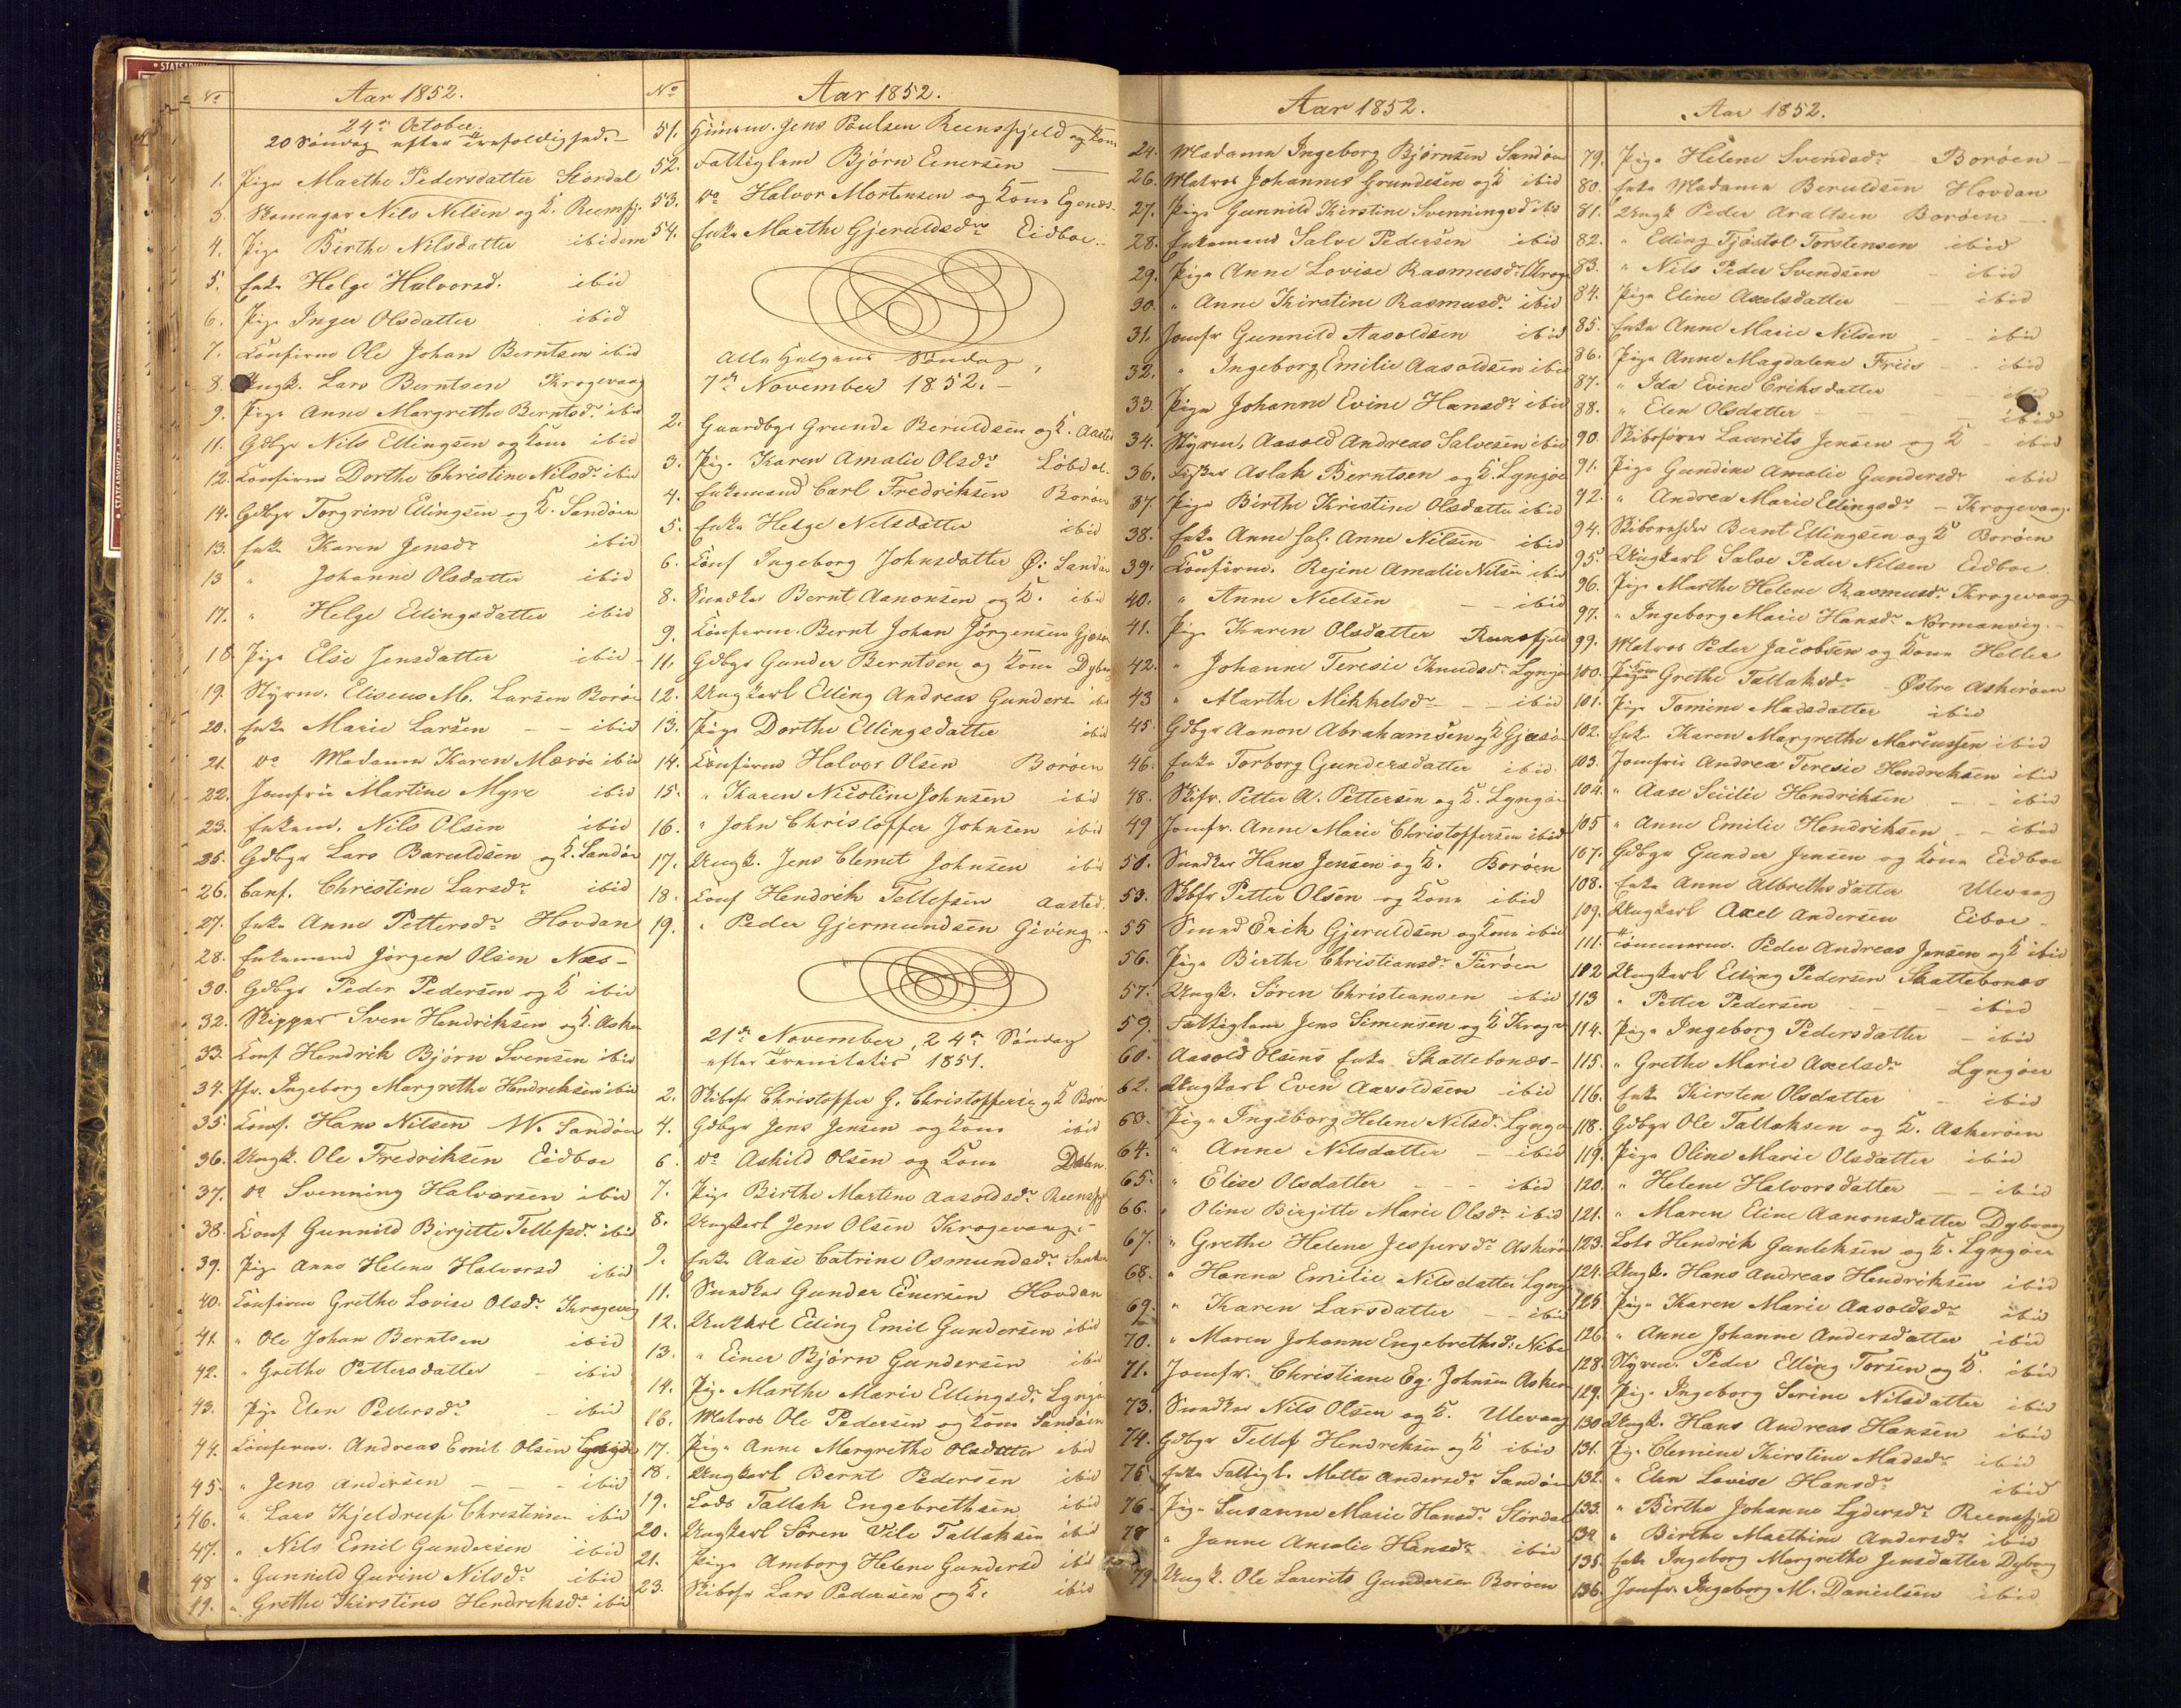 STATSARKIVET
No
Aar 1852.
24de October.
20 Søndag efter Trefoldighed.
1. Pige Marthe Pedersdatter Stordal
3. Skomager Nils Nilsen og K. Reensfj.
4. Pige Birthe Nilsdatter ibidem
5. Enke Helge Halvorsd. ibid
6. Pige Inger Olsdatter ibid
7. Confirm Ole Johan Berntsen ibid
8. Ungk. Lars Berntsen Krogevaag
9. Pige Anne Margrethe Berntsdr ibid
11. Gdbgr Nils Ellingsen og Kone ibid
12. Confirm Dorthe Christine Nilsdr ibid
14. Gdbgr Torgrim Ellingsen og K. Sandøen
13. Enke Karen Jensdr ibid
13 " Johanne Olsdatter ibid
17. " Helge Ellingsdatter ibid
18. Pige Else Jensdatter ibid
19. Styrm. Eliseus M. Larsen Borøe
20. Enke Marie Larsen - - ibid
21. do Madame Karen Mærøe ibid
22. Jomfrue Martine Myre ibid
23. Enkem. Nils Olsen ibid
25. Gdbgr Lars Baruldsen og K. Sandøe
26. Conf. Christine Larsdr ibid
27. Enke Anne Pettersdr Hovdan
28. Enkemand Jörgen Olsen Næs-
30. Gdbgr Peder Pedersen og K ibid
32. Skipper Sven Hendriksen og K. Asker
33. Conf Hendrik Bjørn Svensen ibid
34. Jfr. Ingeborg Margrethe Hendriksen ibid
35. Conf. Hans Nilsen W. Sandøen
36. Ungk. Ole Fredriksen Eidboe
37. do Svenning Halvorsen ibid
38. Conf Gunnild Birgitte Tellefsdr ibid
39. Pige Anne Helene Halvorsd ibid
40. Confirm Grethe Lovise Olsdr Krogevig
41. " Ole Johan Berntsen ibid
42. " Grethe Pettersdatter - ibid
43. Pige Elen Pettersdr - ibid
44. Confirm. Andreas Emil Olsen Lyngøe
45. " Jens Andersen - - - ibid
46. " Lars Kjeldrup Christensen ibid
47. " Nils Emil Gundersen ibid
48 " Gunnild Gurine Nilsdr ibid
49. " Grethe Kirstine Hendriksdr ibid
No
Aar 1852.
51. Tömm. Jens Poulsen Reensfjeld og Kone
52. Fattiglem Bjørn Einersen
53. do Halvor Mortensen og Kone Egenæs.
54. Enke Marthe Gjeruldsdr Eidboe.
Alle Helgens Søndag,
7de November 1852. -
2. Gaardbgr Grunde Beruldsen og K. Aasted
3. Pige Karen Amalie Olsdr Løbdal.
4. Enkemand Carl Fredriksen Borøen
5. Enke Helge Nilsdatter ibid
6. Conf Ingeborg Johnsdatter Ø: Sandøe
8. Snedker Bernt Aanonsen og K. ibid
9. Confirm. Bernt Johan Jörgensen Gjæsøe
11. Gdbgr Gunder Berntsen og Kone Dybvaag
12. Ungkarl Elling Andreas Gunders ibid
13. Pige Dorthe Ellingsdatter ibid
14. Confirm Halvor Olsen Borøen
15. " Karen Nicoline Johnsen ibid
16. " John Christoffer Johnsen ibid
17. Ungk. Jens Clemet Johnsen ibid
18. Conf Hendrik Tellefsen Aasted.
19. " Peder Gjermundsen Giving
21de November, 24de Søndag
efter Trenitatis 1851.
2. Skibsfr Christopher G. Christoffersen og K Borøe
4. Gdbgr Jens Jensen og Kone ibid
6. do Askild Olsen og Kone Dalen
7. Pige Birthe Martine Aasoldsdr Reensfj
8. Ungkarl Jens Olsen Krogevaag.
9. Enke Aase Catrine Osmundsdr
11. Snedker Gunder Einersen Hovdan
12. Ungkarl Elling Emil Gundersen ibid
13. " Einer Bjørn Gundersen ibid
14. Pige Marthe Marie Ellingsdr Lyngøe
16. Matros Ole Pedersen og Kone Sandøen
17. Pige Anne Margrethe Olsdatter ibid
18. Ungkarl Bernt Pedersen ibid
19. Lods Tallak Engebrethsen ibid
20. Ungkarl Søren Vilo Tallaksen ibid
21. Pige Amborg Helene Gundersd ibid
23. Skibsfr Lars Pedersen og K. ibid
Aar 1852.
24. Madame Ingeborg Bjørnsen Sandøen
26. Matros Johannes Grundesen og K ibid
27. Pige Gunnild Kirstine Svenningsd ibid
28. Enkemand Salve Pedersen ibid
29. Pige Anne Lovise Rasmusdr Kroge
30. " Anne Kirstine Rasmusdr ibid
31. Jomfr Gunnild Aasoldsen ibid
32. " Ingeborg Emilie Aasoldsen ibid
33. Pige Johanne Evine Hansdr ibid
34. Styrm. Aasold Andreas Salvesen ibid
36. Fisker Aslak Berntsen og K. Lyngøe
37. Pige Birthe Kristine Olsdatter ibid
38. Enke Anne Sal: Anne Nilsen ibid
39. Confirm. Rejine Amalie Nilsen ibid
40. " Anne Nielsen - - ibid
41. Pige Karen Olsdatter Reensfjeld
42. " Johanne Teresie Knudsdr Lyngøe
43 " Marthe Mikkelsdr - - ibid
45. Gdbgr Aanon Abrahamsen og K Gjæsøe
46. Enke Torborg Gundersdatter ibid.
48. Skifr. Petter A. Pettersen og K. Lyngøe
49 Jomfr. Anne Marie Christoffersen ibid
50. Snedker Hans Jensen og K. Borøen
53. Skbfr Petter Olsen og Kone ibid
55 Smed Erik Gjeruldsen og Kone ibid
56. Pige Birthe Christiansdr Furøen
57. Ungk. Søren Christiansen ibid
59. Fattiglem Jens Simensen og K Kroge
60. Aasold Olsens Enke Skattebonæs-
62. Ungkarl Even Aavoldsen ibid
63. Pige Ingeborg Helene Nilsdr Lyngø
64. " Anne Nilsdatter - ibid
65. " Elise Olsdatter - - - ibid
66. " Oline Birgitte Marie Olsdr ibid
67. " Grethe Helene Jespersdr Askerø
68. " Hanna Emilie Nilsdatter Lyng
69. " Karen Larsdatter - - ibid
70. " Maren Johanne Engebrethsdr Nibe
71. Jomfr. Christiane Eg. Johnsen Asker
73. Snedker Nils Olsen og K. Ulevaag
74. Gdbgr Tellef Hendriksen og K ibid
75. Enke Fattigl. Mette Andersdr Sandøen
76. Pige Susanne Marie Hansdr Stordal
78 " Janne Amalie Hansdr ibid
79. Ungk. Ole Laurits Gundersen Borøen
Aar 1852.
79. Pige Helene Svendsdr - Borøen -
80. Enke Madame Beruldsen Hovdan
81. Ungk Peder Araltsen Borøen -
82. " Elling Tjöstol Torstensen ibid
83. " Nils Peder Svendsen - ibid
84. Pige Eline Axelsdatter - - ibid
85. Enke Anne Marie Nilsen - - ibid
86. Pige Anne Magdalene Friis - - ibid
87. " Ida Evine Eriksdatter ibid
88. " Elen Olsdatter - - - ibid
90. Skibsfører Laurits Jensen og K - ibid
91. Pige Gundine Amalie Gundersdr ibid
92. " Andrea Marie Ellingsdr - Krogevaag.
94. Skibsreder Bernt Ellingsen og K Borøen
95. Ungkarl Salve Peder Nilsen Eidboe
96. Pige Marthe Helene Rasmusdr Krogevaag
97. " Ingeborg Marie Hansdr Normanvig.
99. Matros Peder Jacobsen og Kone Helle
100. Grethe Tallaksdr Østre Askerøen
101. Pige Tomine Madsdatter ibid
102. Enke Karen Margrethe Marcussen ibid
103. Jomfrue Andrea Teresie Hendriksen ibid
104. " Aase Scilie Hendriksen - - ibid
105 " Anne Emilie Hendriksen - - ibid
107. Gdbgr Gunder Jensen og Kone Eidboe
108. Enke Anne Albrethsdatter Ulevaag
109. Ungkarl Axel Andersen Eiboe -
111. Tömmerm. Peder Andreas Jensen og K ibid
112 Ungkarl Elling Pedersen Skattebonæs
113 " Petter Pedersen - - - ibid
114. Pige Ingeborg Pedersdatter - ibid
115. " Grethe Marie Axelsdr Lyngøen
116. Enke Kirsten Olsdatter - ibid
118. Gdbgr Ole Tallaksen og K. Askerøen
119. Pige Oline Marie Olsdatter ibid
120. " Helene Halvorsdatter - - ibid
121. " Maren Eline Aanonsdatter Dybvaag
123. Lods Hendrik Gunleksen og K. Lyngøen
124. Ungk. Hans Andreas Hendriksen ibid
125 Pige Karen Marie Aasoldsdr ibid
126. " Anne Johanne Andersdatter ibid
128. Styrm. Peder Elling Torsen og K. ibid
129. Pige Ingeborg Serine Nilsdatter ibid
130 Ungk. Hans Andreas Hansen ibid
131. Pige Clemine Kirstine Madsdr ibid
132. " Elen Lovise Hansdr ibid
133. " Birthe Johanne Lydersdr Reensfjeld
134 " Birthe Marthine Andersdr ibid
135. Enke Ingeborg Margrethe Jensdatter Dybvaag
136. Jomfr. Ingeborg M. Danielsen ibid